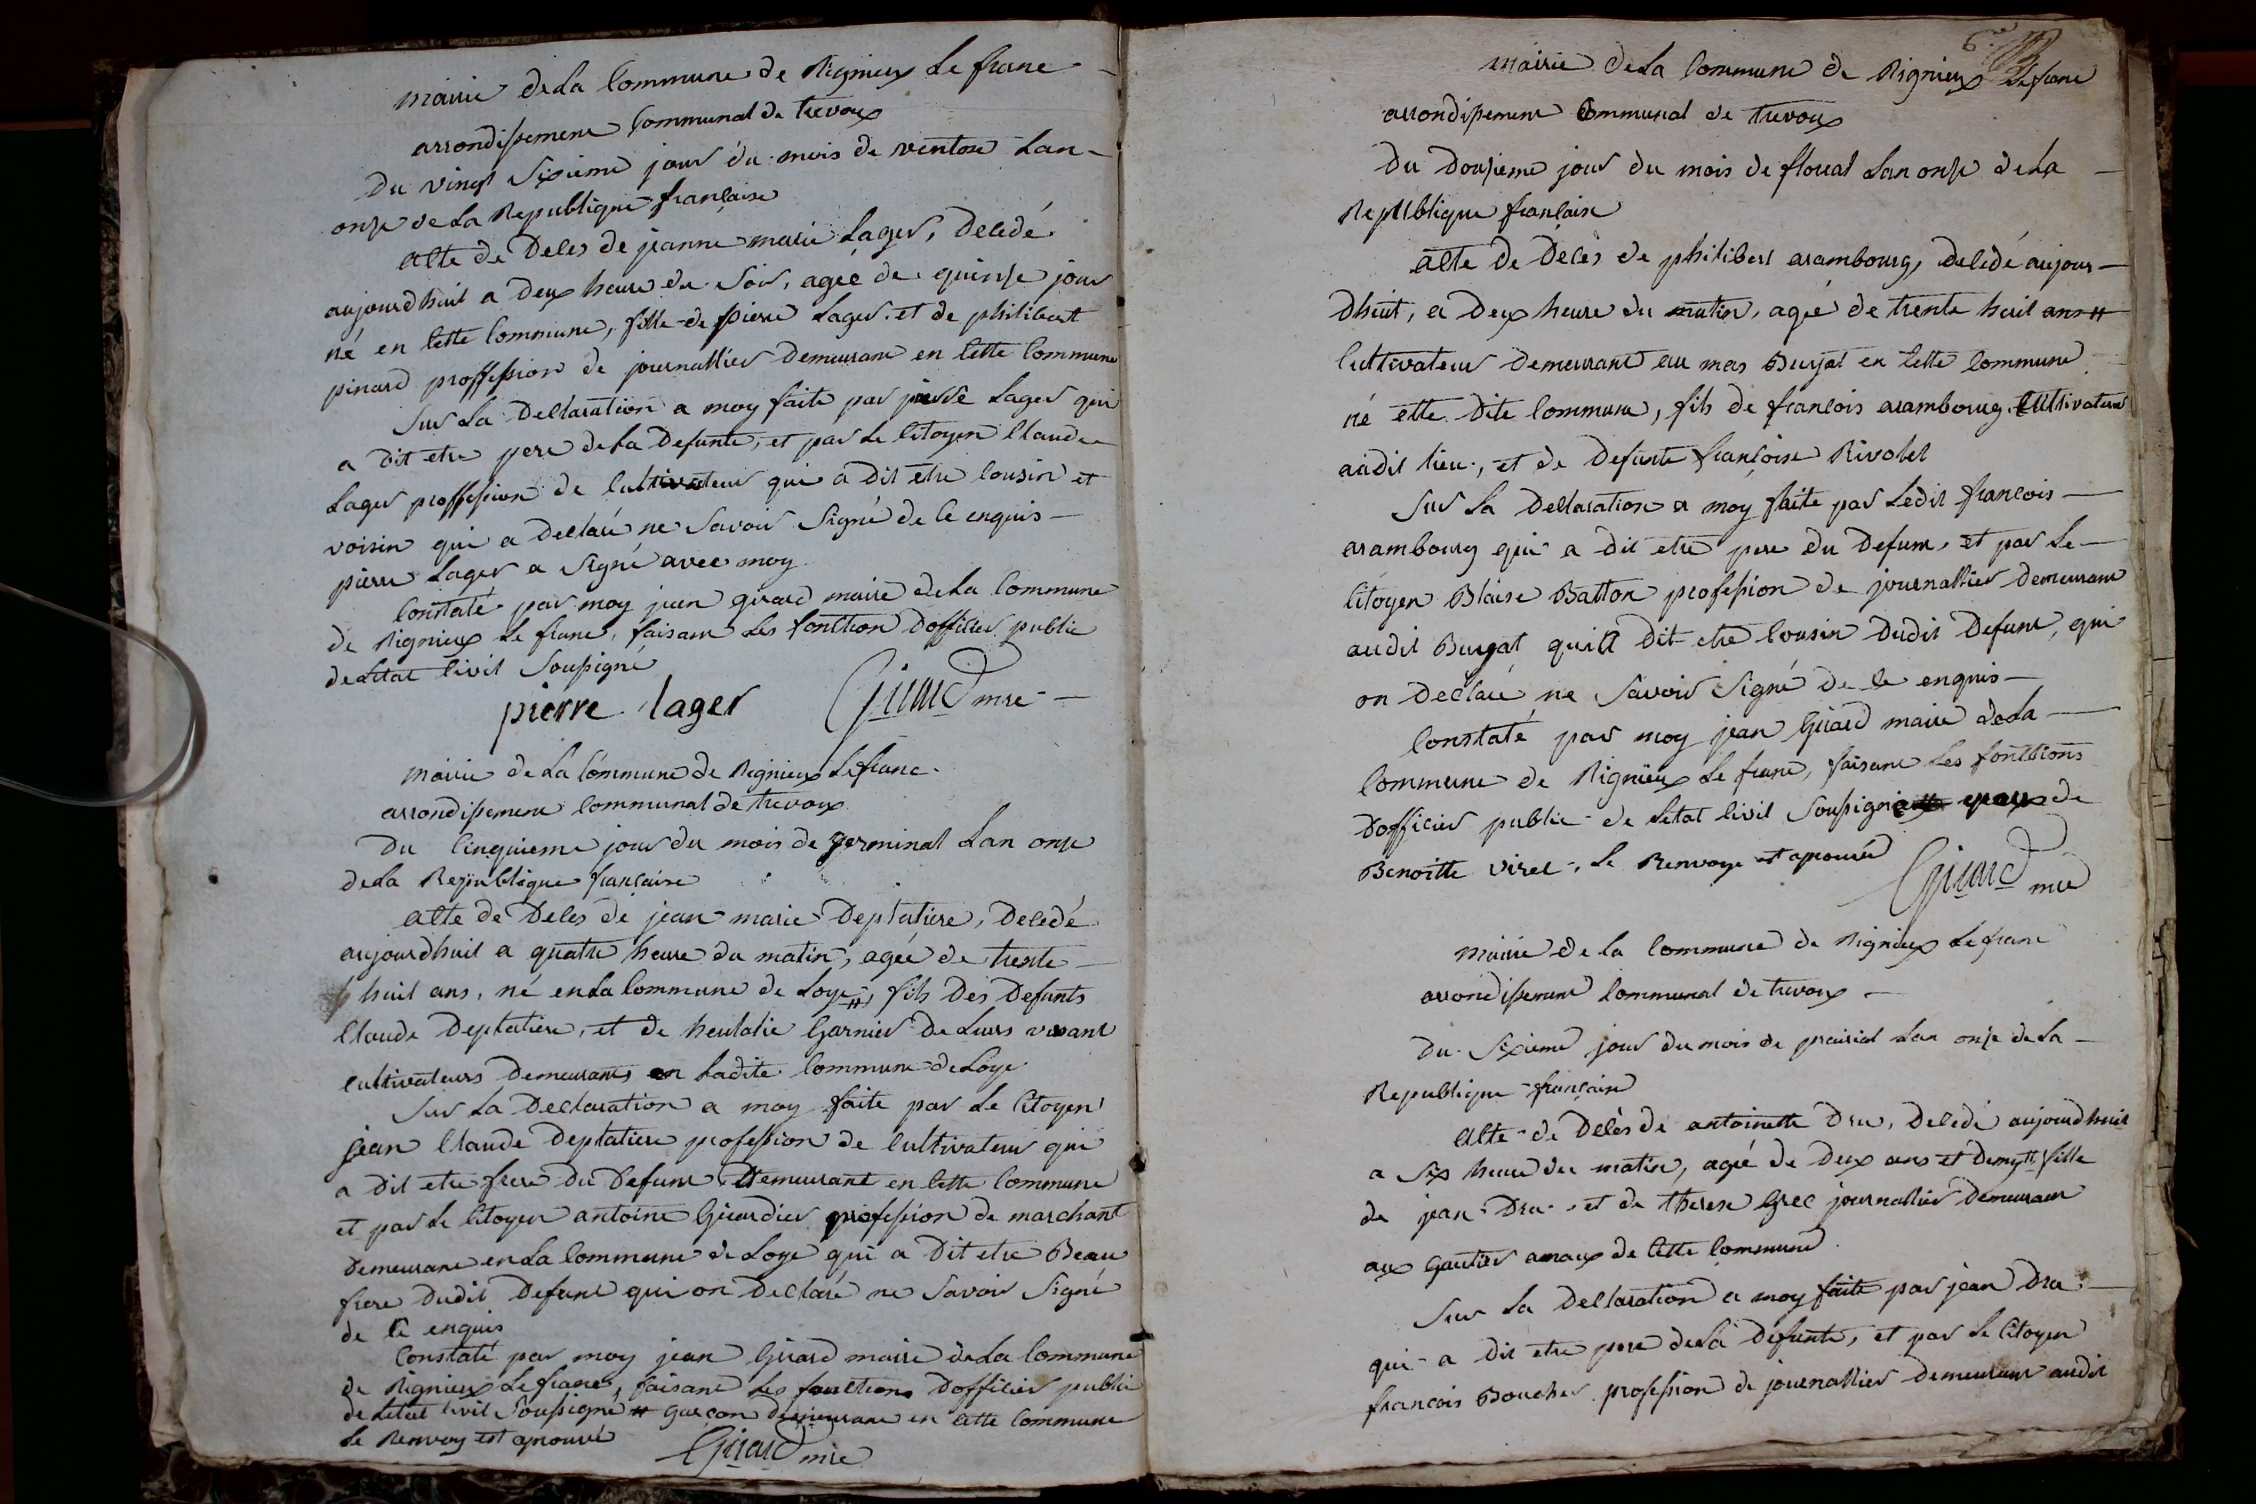 mairie de La Commune de Rignieux Le franc
arrondissement Communal de trevoux
Du vingt Sixieme jour du mois de ventose Lan
onze de La Republique française
acte de Deces de jeanne marie Lager, Decedé
aujourdhuit a Deux heure du Soir, agée de quinze jour
né en Cette Commune, fille de pierre Lager et de philibert
pinard proffession de journallier Demeurant en Cette Commune
Sur La Declaration a moy faite par pierre Lager qui
a Dit etre pere de La Defunte, et par Le Citoyen Claude
Lager proffession de Cultivateur qui a Dit etre Cousin et
voisin qui a Declaré ne Savoir Signé de Ce enquis
pierre Lager a Signé avec moy
Constaté par moy jean girard maire de La Commune
de Rignieux Le franc, faisant Les fonction Dofficier public
de Létat Civil Soussigné
pierre lager Girard mre
mairie de La Commune de Rignieux Le franc
arrondissement Communal de trevoux
Du Cinquieme jour du mois de germinal Lan onze
de La Republique française
acte de Deces de jean marie Deplatiere, Decedé
aujourdhuit a quatre heure du matin, agée de trente
huit ans, né en La Commune de Loye #, fils Des Defunts
Claude Deplatiere, et de heulalie Garnier De Leurs vivant
Cultivateurs Demeurants en Ladite Commune de Loye
Sur La Declaration a moy faite par Le Citoyen
jean Claude Deplatiere profession de Cultivateur qui
a Dit etre frere Du Defunt Demeurant en Cette Commune
et par Le Citoyen antoine Girardier profession de marchant
Demeurant en La Commune de Loye qui a Dit etre Beau
frere Dudit Defunt qui on Declaré ne Savoir Signé
de Ce enquis
Constaté par moy jean Girard maire de La Commune
de Rignieux Le franc, faisant Les fonctions Dofficier public
de Létat Civil Soussigné # garçon Demeurant en Cette Commune
Le Renvoy est aprouvé Girard mre
6
mairie de La Commune de Rignieux Le franc
arrondissement Communal de trevoux
Du Douzieme jour du mois de floreal Lan onze de La
Republique française
acte De Décès de philibert arambourg, Decedé aujour
Dhuit, a Deux heure du matin, agé de trente huit ans #
Cultivateur Demeurant au mas Burjat en Cette Commune
né ette Dite Commune, fils de francois arambourg Cultivateur
audit lieu, et de Defunte françoise Rivolet
Sur La Declaration a moy faite par Ledit francois
arambourg qui a dit etre pere Du Defunt, et par Le
Citoyen Blaise Batton profession de journallier demeurant
audit Burgat quil a Dit etre Cousin Dudit Defunt, qui
on Declaré ne Savoir Signé de Ce enquis
Constaté par moy jean Girard maire de La
Commune de Rignieux Le franc, faisant Les fonctions
Dofficier public de Létat Civil Soussigné epoux de
Benoitte viret, Le Renvoye est aprouvé Girard mre
mairie de La Commune de Rignieux Le franc
arrondissement Communal de trevoux
Du Sixieme jour du mois de prairial Lan onze de La
Republique française
Acte de Décès de antoinette Dru, Decedé aujourdhuit
a Six heure du matin, agé de Deux ans et Demy # fille
de jean Dru et de therese Grec journallier Demeurant
aux Gautier amaux de Cette Commune
Sur La Declaration a moy faite par jean Dru
qui a Dit etre pere de La Defunte, et par Le Citoyen
francois Boucher profession de journallier Demeurant audit